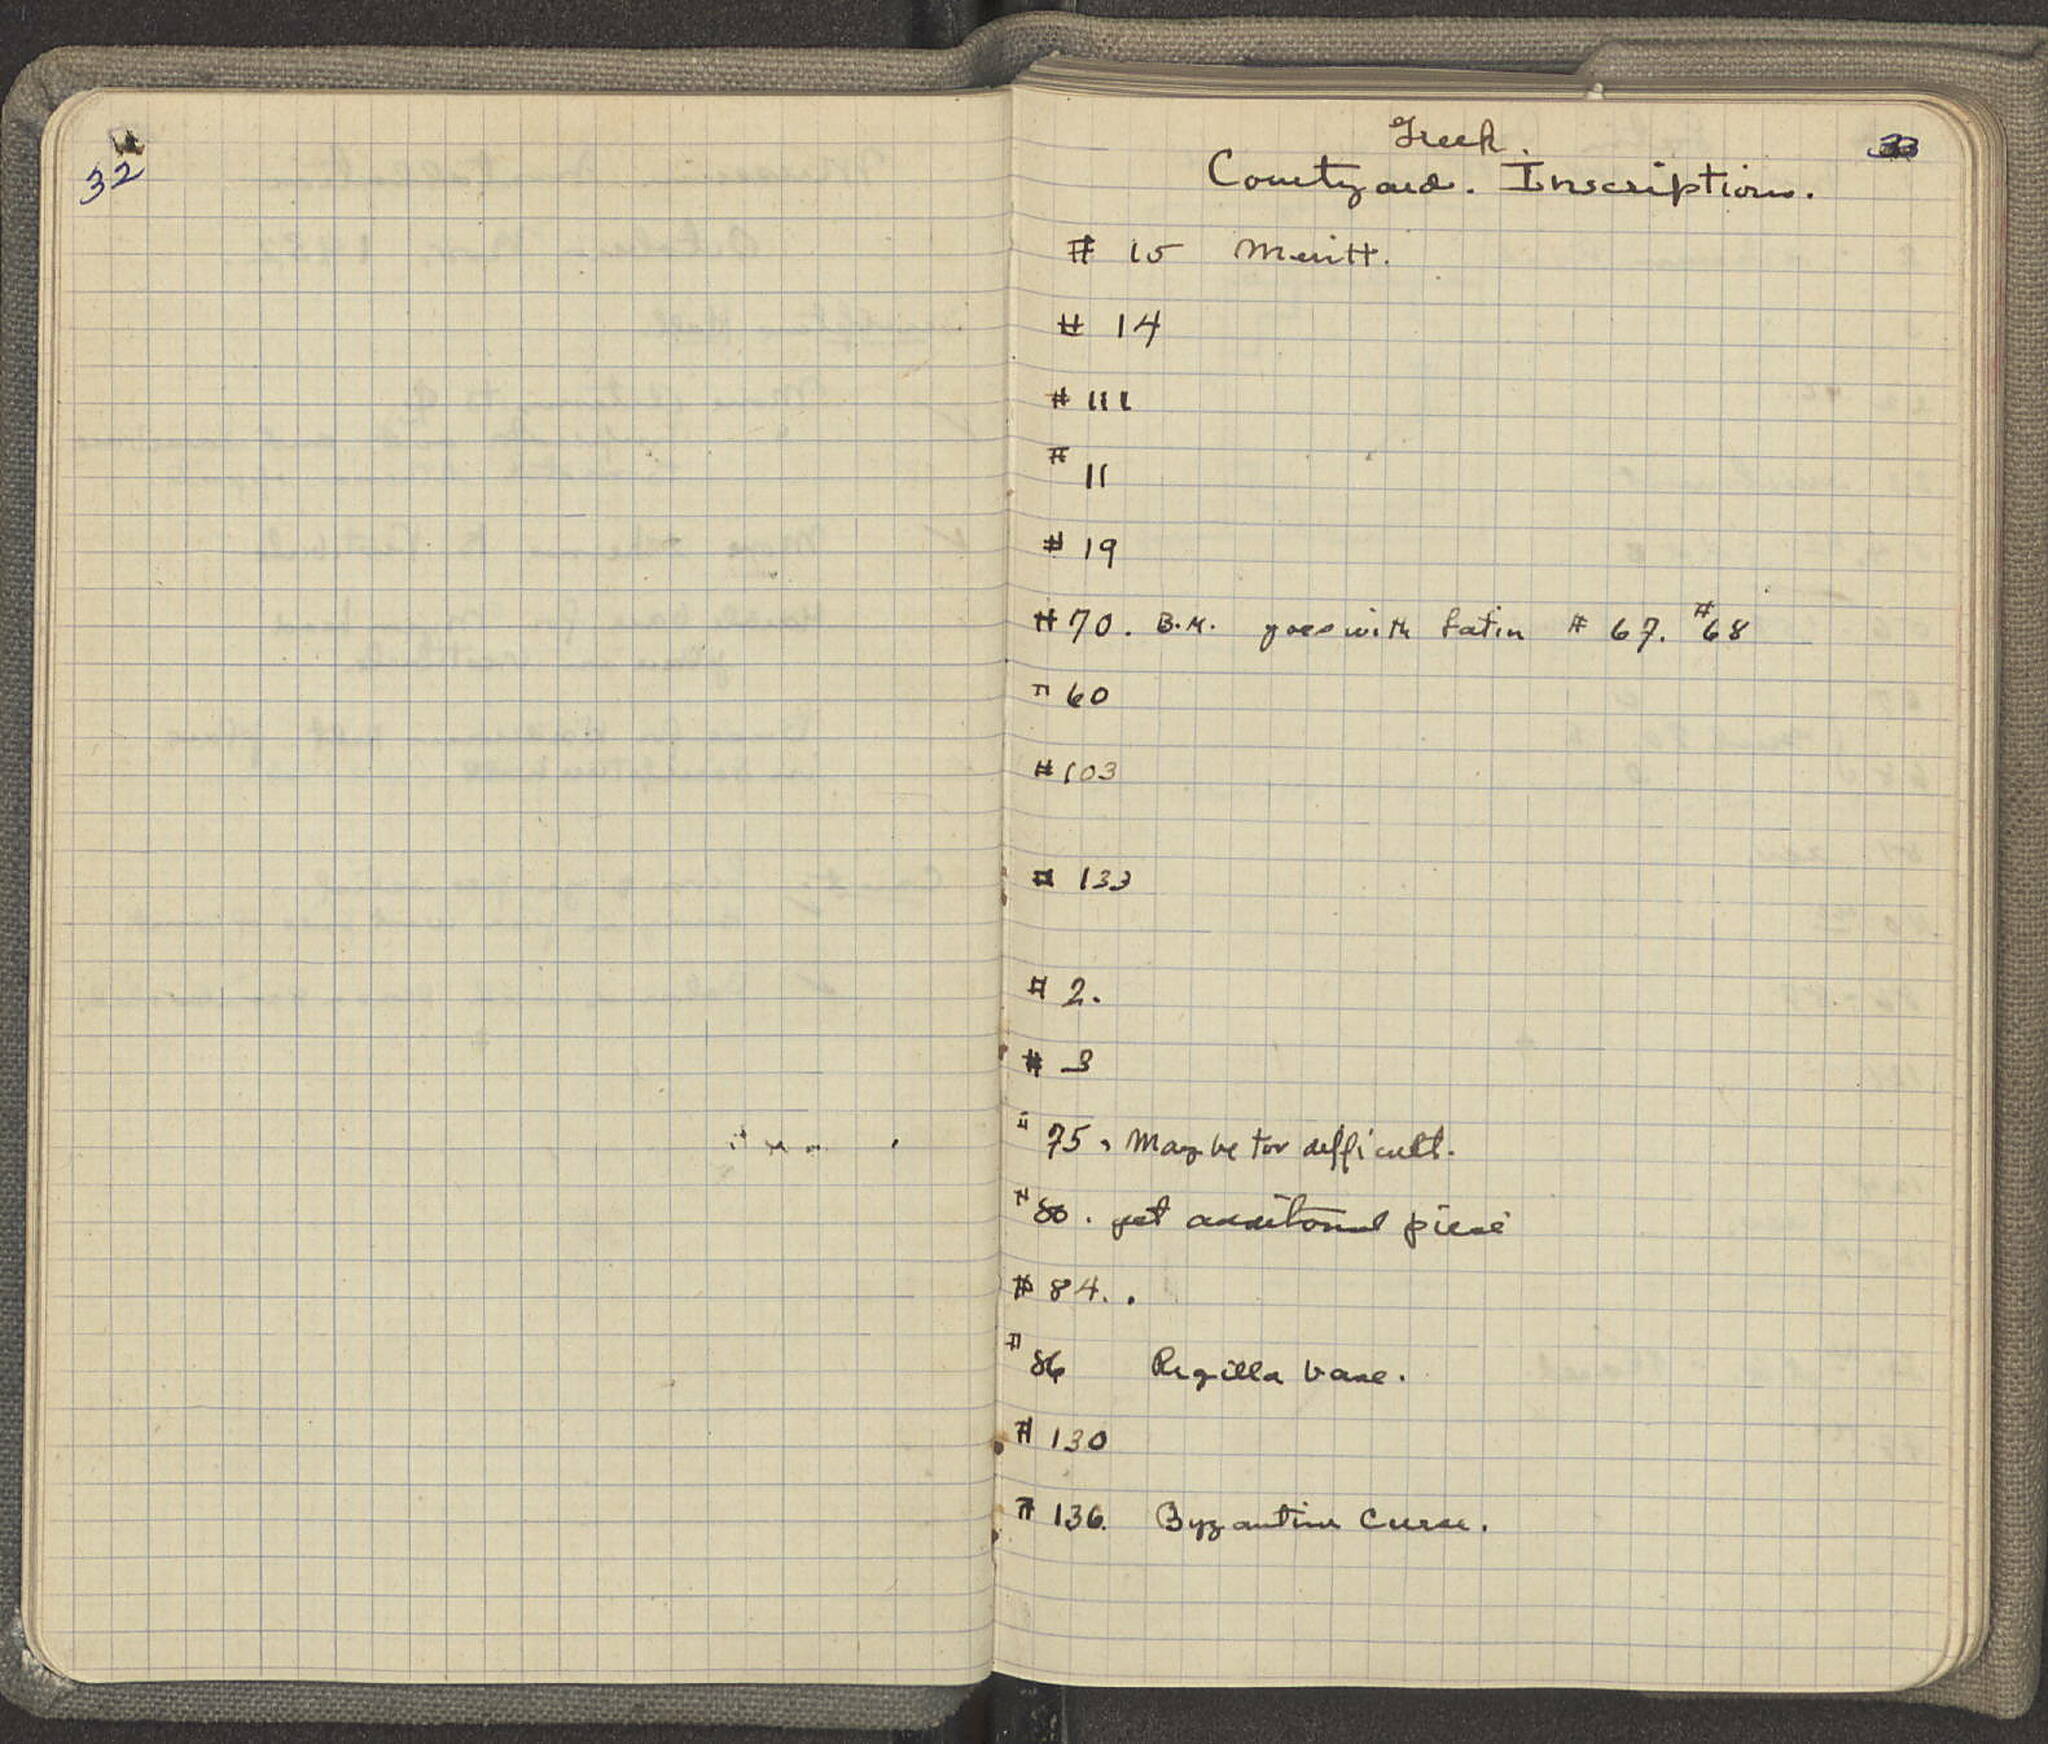 32
33
Greek.
Courtyard. Inscriptions.
# 15 Meritt.
# 14
# 111
# 11
# 19
# 70. B.M. goes with Latin # 67. #68
" 60
# 103
# 133
# 2.
# 3
" 75, May be too difficult.
# 80. get additional piece
# 84..
" 86 Regilla base.
# 130
# 136. Byzantine Curse.